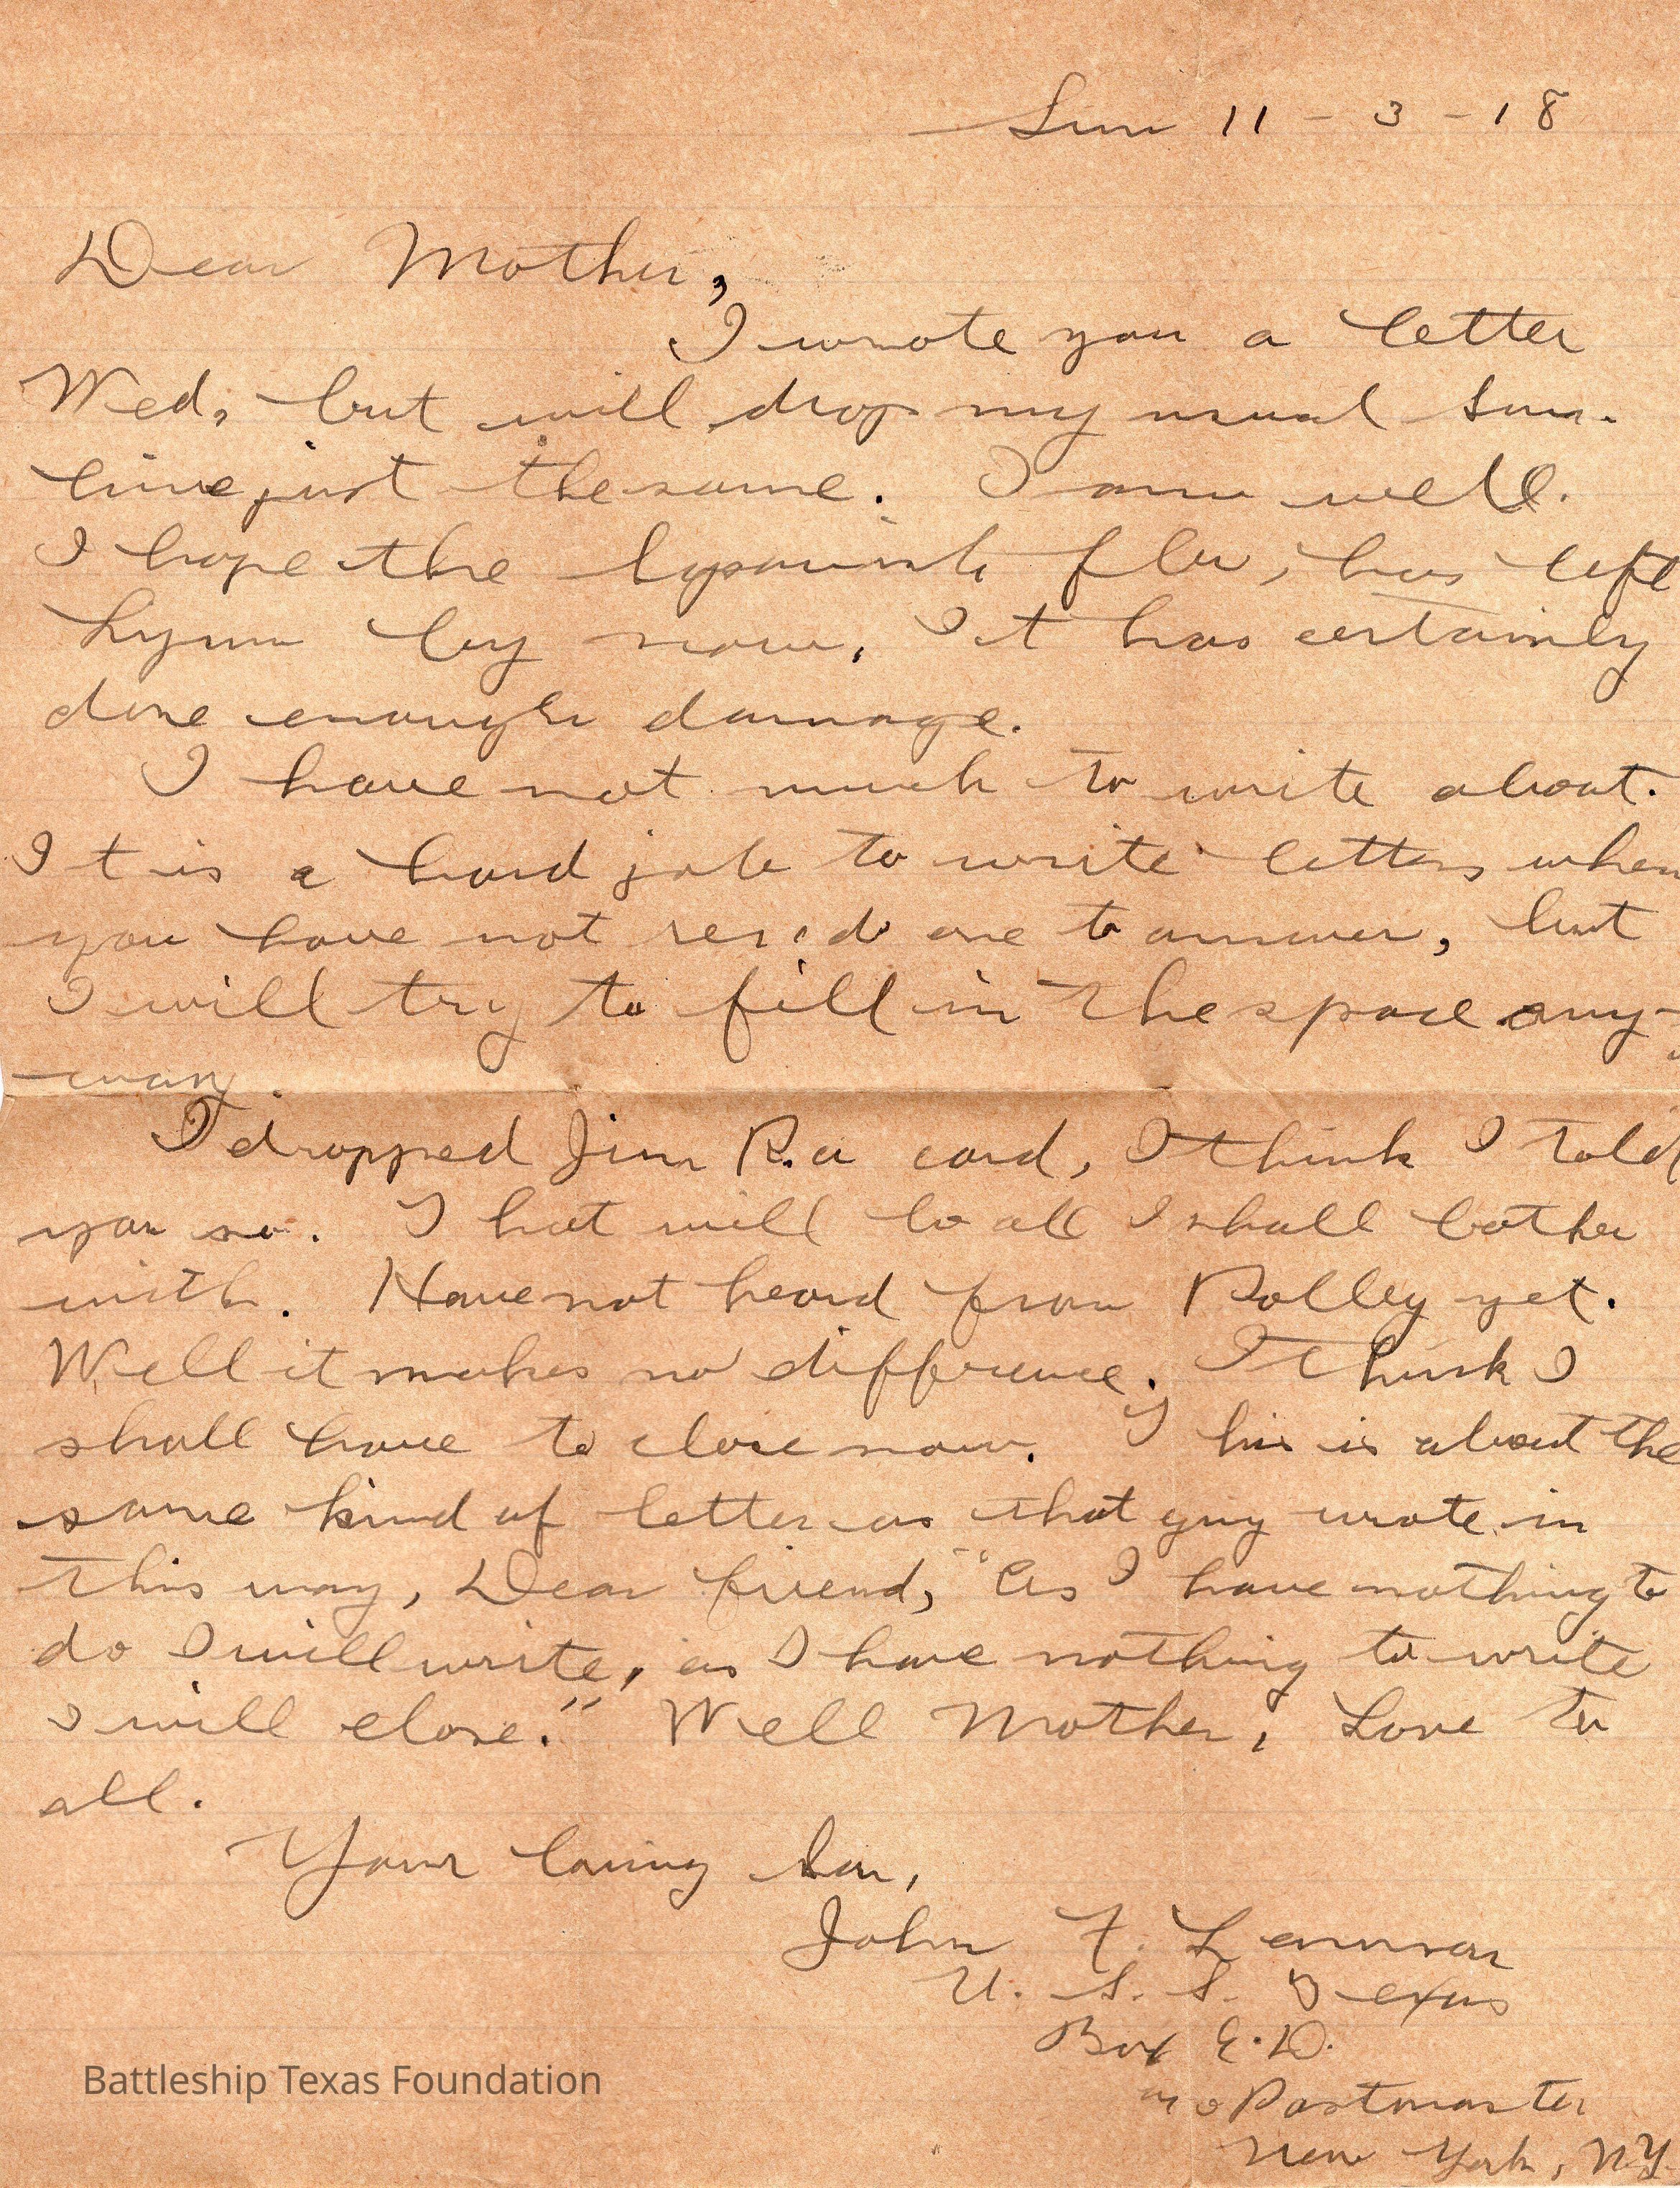 Sun 11 - 3 - 18
Dear Mother,
I wrote you a letter
Wed, but will drop my usual Sun.
line just the same. I am well.
I hope the Spanish flu, has left
Lynn by now. It has certainly
done enough damage.
I have not much to write about.
It is a hard job to write letters when
you have not rec'd one to answer, but
I will try to fill in the space any-
way.
I dropped Jim R. a card, I think I told
you so. That will be all I shall bother
with. Have not heard from Polley yet.
Well it makes no difference. I think I
shall have to close now. This is about the
same kind of letter as that guy wrote in
this way, Dear friend, "As I have nothing to
do I will write, as I have nothing to write
I will close." Well Mother, Love to
all.
Your loving Son,
John F. Lennon
U. S. S. Texas
Box E.D.
Postmaster
New York, N.Y.
Battleship Texas Foundation